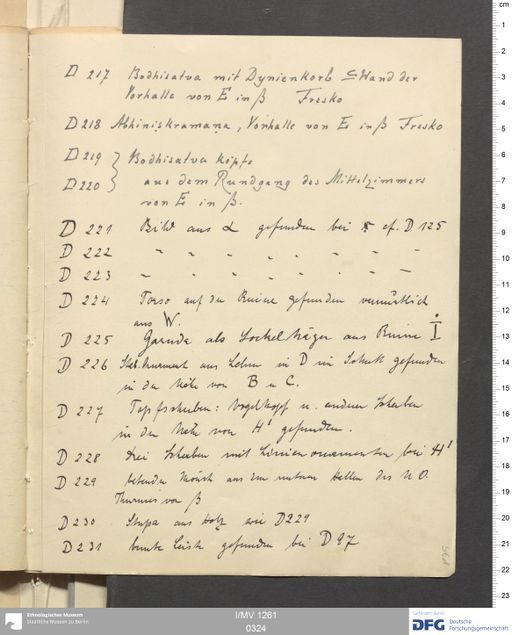 D 217 Bodhisatva mit Dynienkorb S Wand der
Vorhalle von E in ß Fresko
D 218 Abhiniṣkramaṇa, Vorhalle von E in ß Fresko
D 219 } Bodhisatva köpfe
D 220 } aus dem Rundgang des Mittelzimmers
von E in ß.
D 221 Bild aus α gefunden bei cf. D 125
D 222 " " " " " " " "
D 223 " " " " " " " "
D 224 Torso auf der Ruine gefunden vermutlich
aus W.
D 225 Garuda als Sockelträger aus Ruine I
D 226 aus Lehm in D im Schutt gefunden
in der Nähe von B u C.
D 227 Topfscherben: Vogelkopf u. andere Scherben
in der Nähe von H' gefunden.
D 228 drei Scherben mit Linienornamenten bei H'
D 229 betender Mönch aus den unteren Hallen des N O.
Thurmes von ß
D 230 Stupa aus Holz wie D 229
D 231 bunte Leiste gefunden bei D 97
Ethnologisches Museum
Staatliche Museen zu Berlin
I/MV 1261
0324
Gefördert durch
DFG Deutsche
Forschungsgemeinschaft
cm
1
2
3
4
5
6
7
8
9
10
11
12
13
14
15
16
17
18
19
20
21
22
23